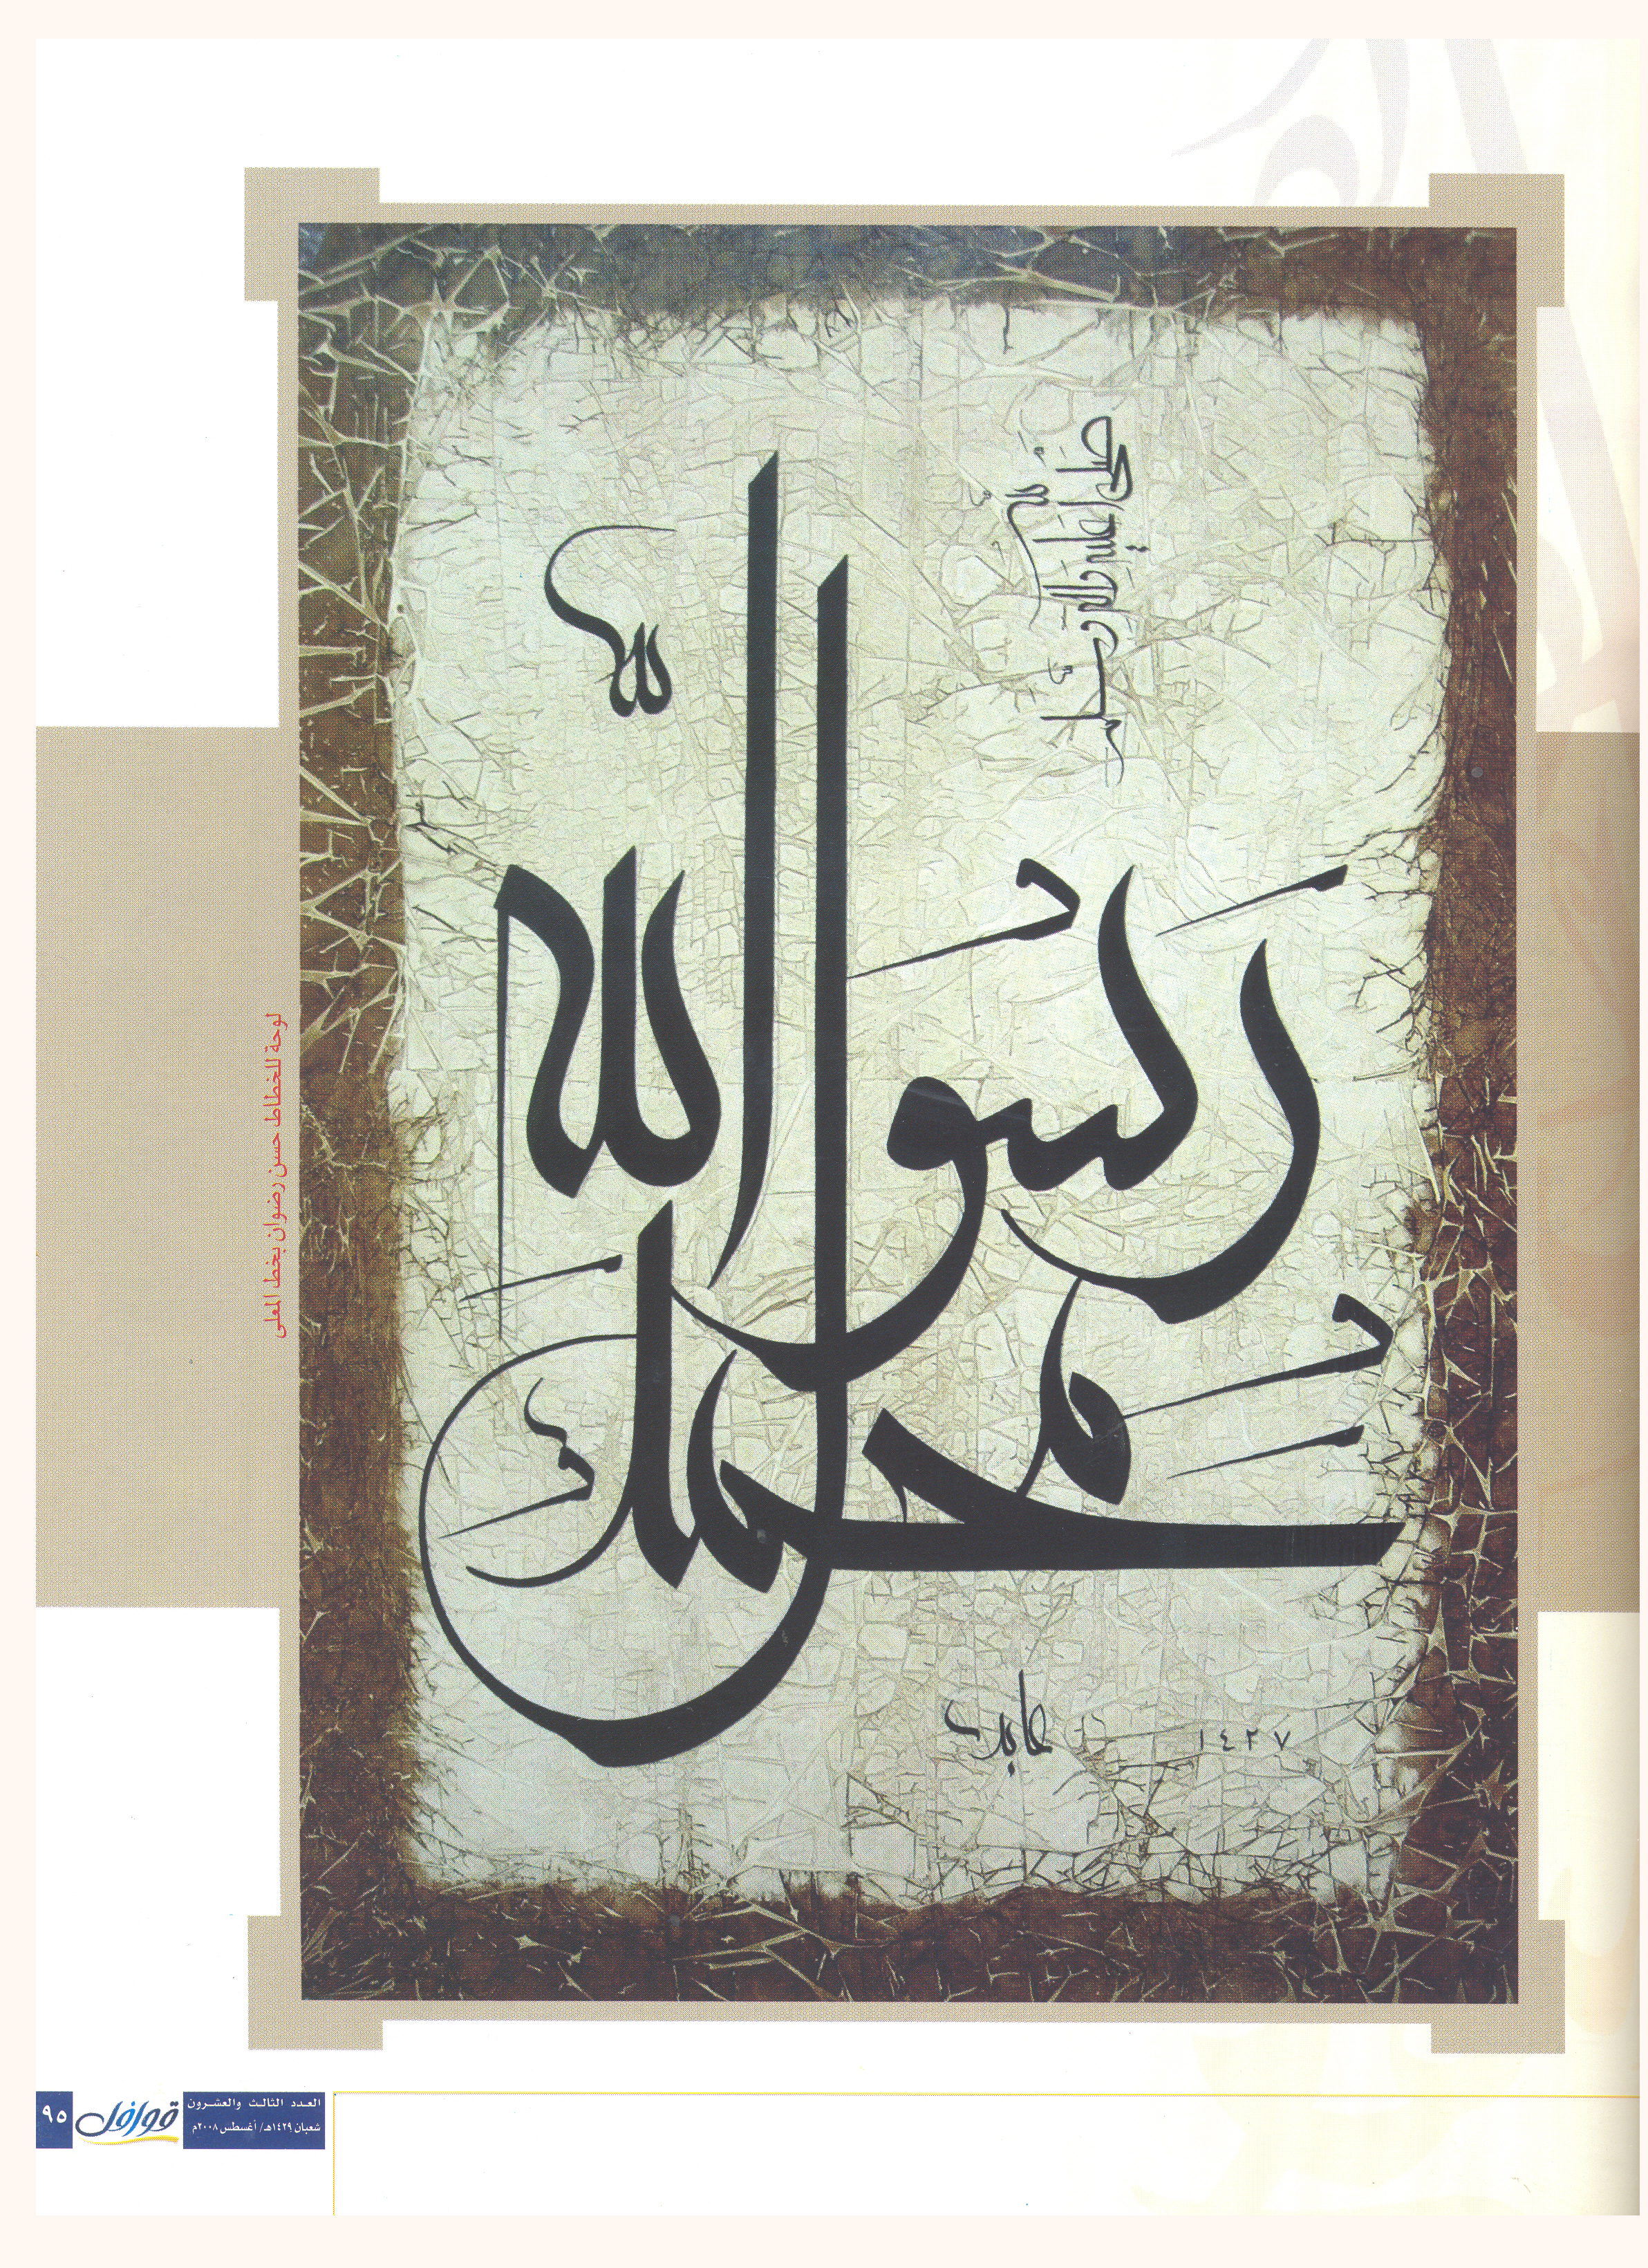 محمد رسول الله
صلى الله عليه وآله وسلم
عابد
١٤٢٧
لوحة للخطاط حسن رضوان بخط المعلى
العدد الثالث والعشرون
شعبان ١٤٢٩هـ/ أغسطس ٢٠٠٨م
قوافل
٩٥